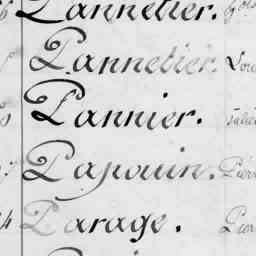 Pannetier.
Pannetier.
Pannier.
Papouin.
Parage.